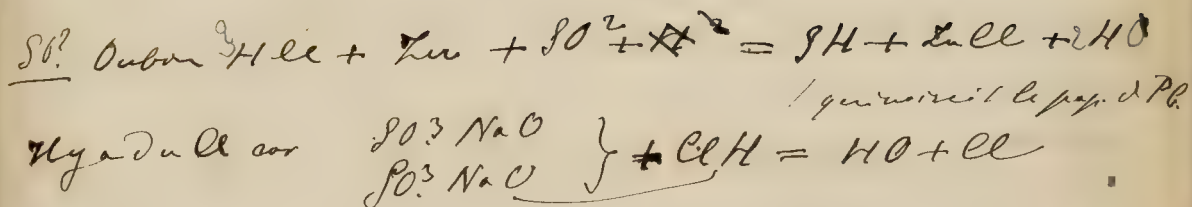 SO² Ou bien 3HCl + Zn + SO² + = SH + ZnCl + 2HO
qui noircit le pap. d. Pb.
Il y a du Cl car SO³ NaO } + ClH = HO + Cl
SO³ NaO